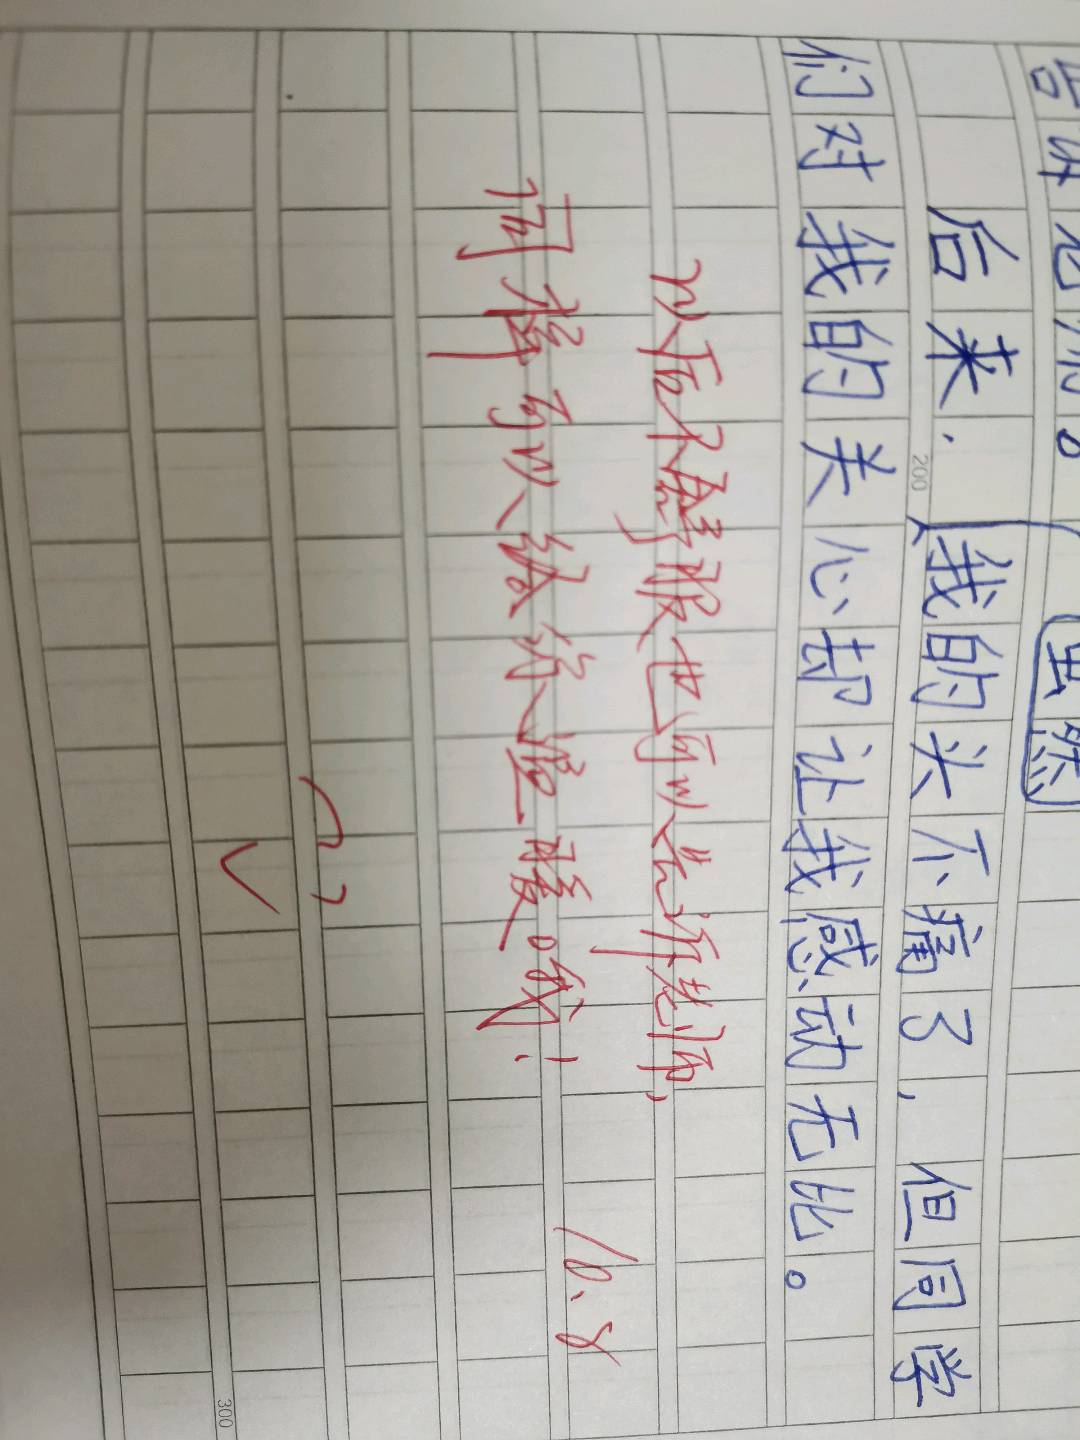 告诉老师。
虽然
后来，我的头不痛了，但同学
200
们对我的关心却让我感动无比。
以后不舒服也可以告诉老师，
同样可以给你温暖哦！
10.8
300